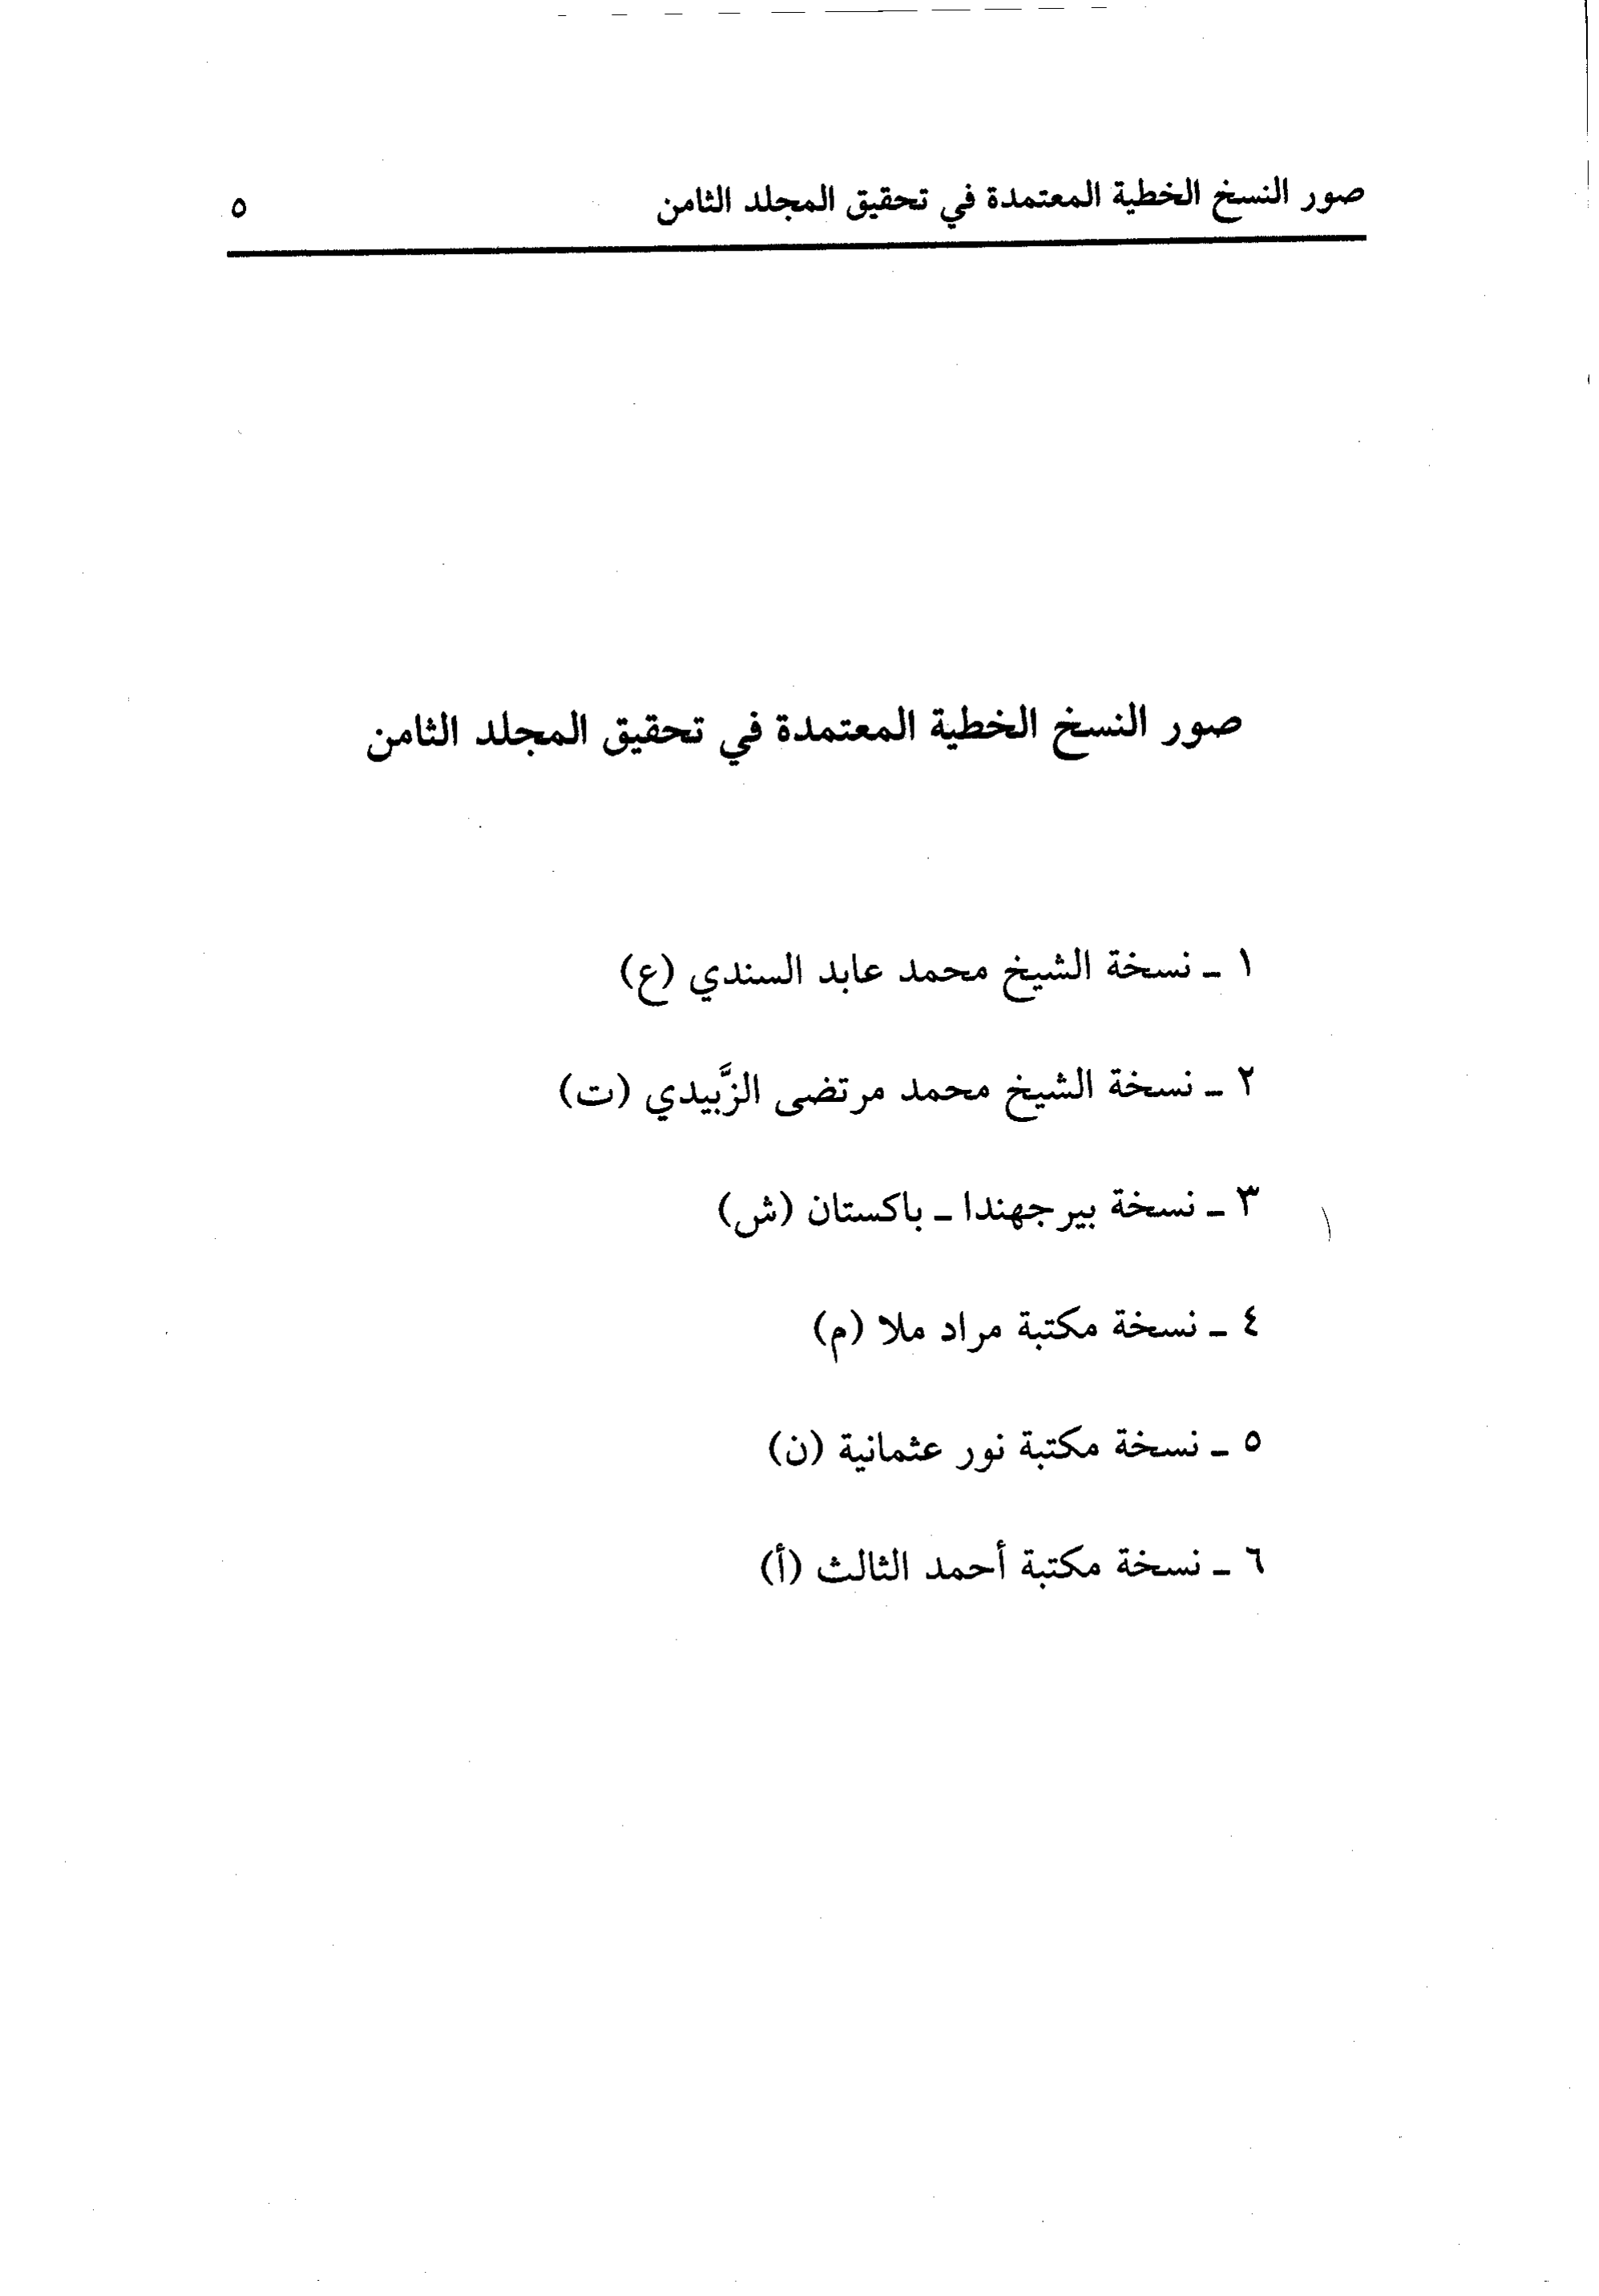 صور النسخ الخطية المعتمدة في تحقيق المجلد الثامن ٥
صور النسخ الخطية المعتمدة في تحقيق المجلد الثامن
١ ـ نسخة الشيخ محمد عابد السندي (ع)
٢ ـ نسخة الشيخ محمد مرتضى الزَّبيدي (ت)
٣ ـ نسخة بيرجهندا ـ باكستان (ش)
٤ ـ نسخة مكتبة مراد ملا (م)
٥ ـ نسخة مكتبة نور عثمانية (ن)
٦ ـ نسخة مكتبة أحمد الثالث (أ)